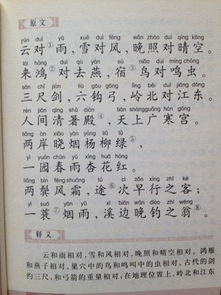 原文
yún duì yǔ xuě duì fēng wǎn zhào duì qíng kōng
云对①雨，雪对风，晚照对晴空。
lái hóng duì qù yàn sù niǎo duì míng chóng
来鸿②对去燕，宿③鸟对鸣虫。
sān chǐ jiàn liù jūn gōng lǐng běi duì jiāng dōng
三尺剑，六钧弓，岭北对江东。
rén jiān qīng shǔ diàn tiān shàng guǎng hán gōng
人间清暑殿，天上广寒宫。
liǎng àn xiǎo yān yáng liǔ lǜ
两岸晓烟杨柳绿，
yì yuán chūn yǔ xìng huā hóng
一园春雨杏花红。
liǎng bìn fēng shuāng tú cì zǎo xíng zhī kè
两鬓风霜，途次早行之客；
yì suō yān yǔ xī biān wǎn diào zhī wēng
一蓑烟雨，溪边晚钓之翁。
释义
云和雨相对，雪和风相对，晚照和晴空相对。鸿雁
和燕子相对，巢穴中的鸟和鸣叫中的虫相对。古代的剑
约三尺，和弓箭的重量相对，在地理位置上，岭北和江东